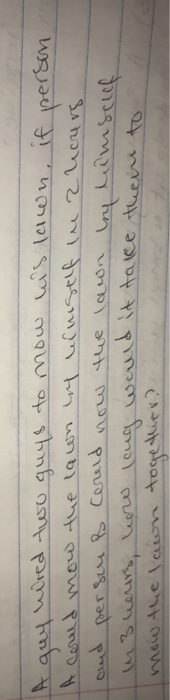 A guy hired two guys to mow his lawn, if person
A could mow the lawn by himself in 2 hours
and person B could mow the lawn by himself
in 3 hours, how long would it take them to
mow the lawn together?